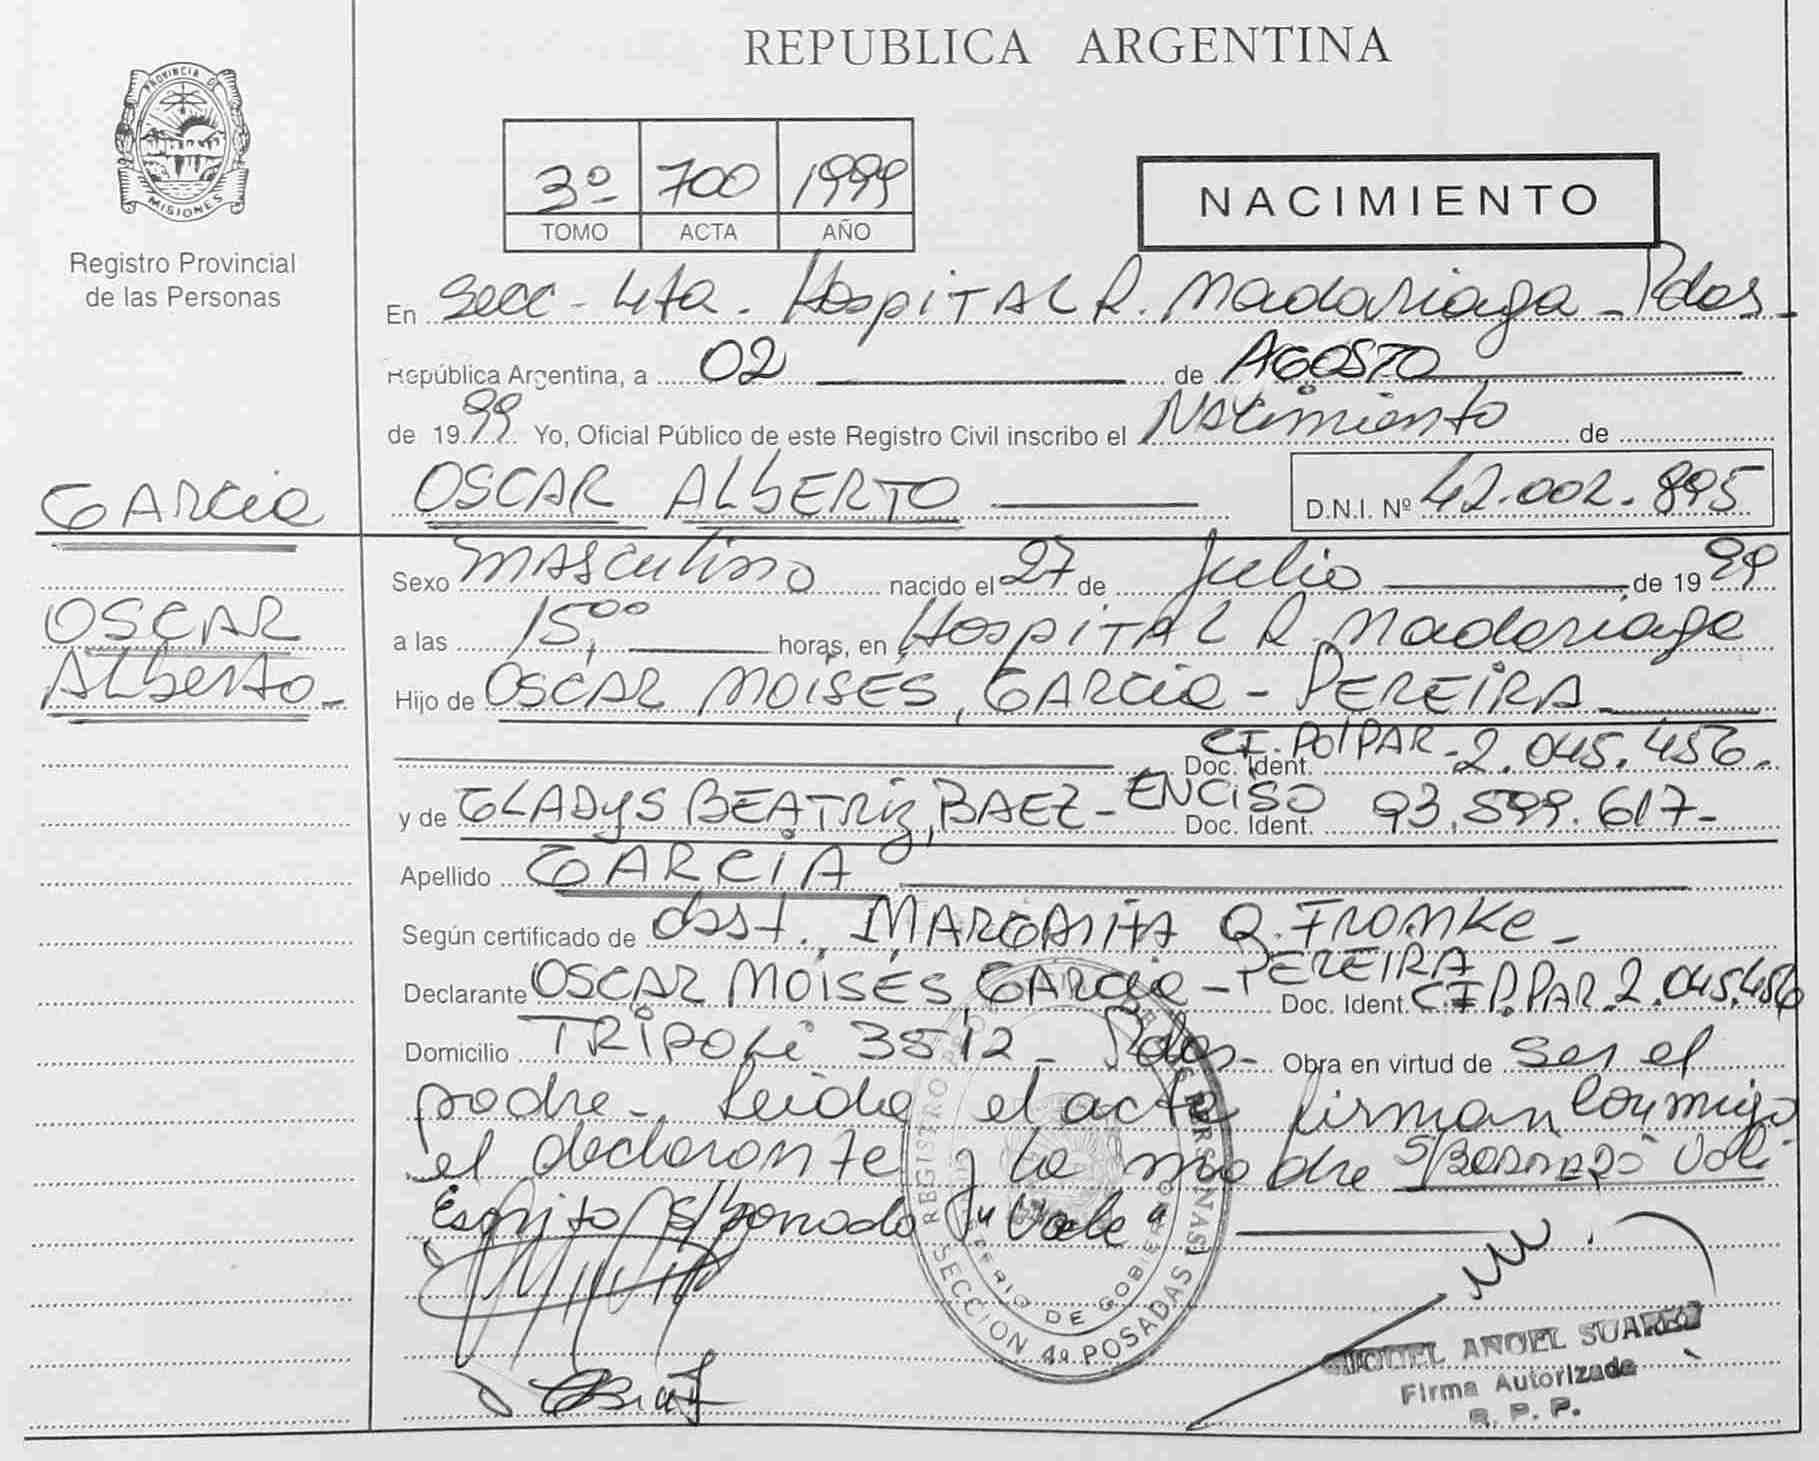 REPUBLICA ARGENTINA
PROVINCIA DE
MISIONES
Registro Provincial
de las Personas
3º 700 1999
TOMO ACTA AÑO
NACIMIENTO
En Secc - 4ta. Hospital R. Madariaga - Pdas -
República Argentina, a 02 de AGOSTO
de 1999 Yo, Oficial Público de este Registro Civil inscribo el Nacimiento de
García
OSCAR ALBERTO D.N.I. Nº 42.002.895
Sexo masculino nacido el 27 de Julio de 1999
OSCAR
a las 15,00 horas, en Hospital R. Madariaga
Alberto -
Hijo de OSCAR MOISÉS, GARCIA - PEREIRA
Doc. Ident. CI. Pol PAR - 2.045.456.
y de GLADYS BEATRIZ, BAEZ - ENCISO Doc. Ident. 93.599.617 -
Apellido GARCÍA
Según certificado de obst. MARGARITA Q. FROMKE -
Declarante OSCAR MOISÉS GARCIA - PEREIRA Doc. Ident. C.I P. PAR. 2.045.456
Domicilio TRIPOLI 3512 - Pdas - Obra en virtud de ser el
padre -. Leída el acta firman conmigo
el declarante y la madre S/BORRADO Vale
Escrito s/borrado "Vale"
REGISTRO PERSONAS
MINISTERIO DE GOBIERNO
SECCION 4ª POSADAS MNES
ANGEL SUAREZ
Firma Autorizada
R. P. P.